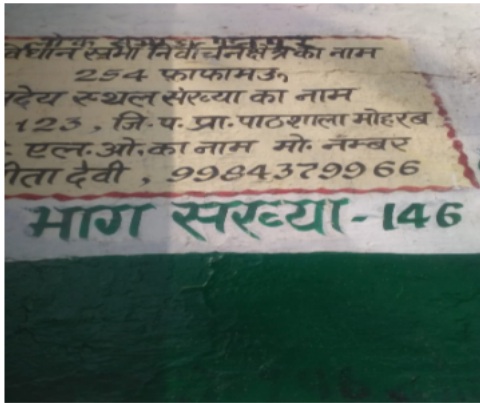 विधान सभा निर्वाचन क्षेत्र का नाम
254 फाफामऊ
देय स्थल संख्या का नाम
123, जि.प. प्रा. पाठशाला मोहरब
एल.ओ. का नाम मो. नम्बर
ीता देवी, 9984379966
भाग सख्या-146